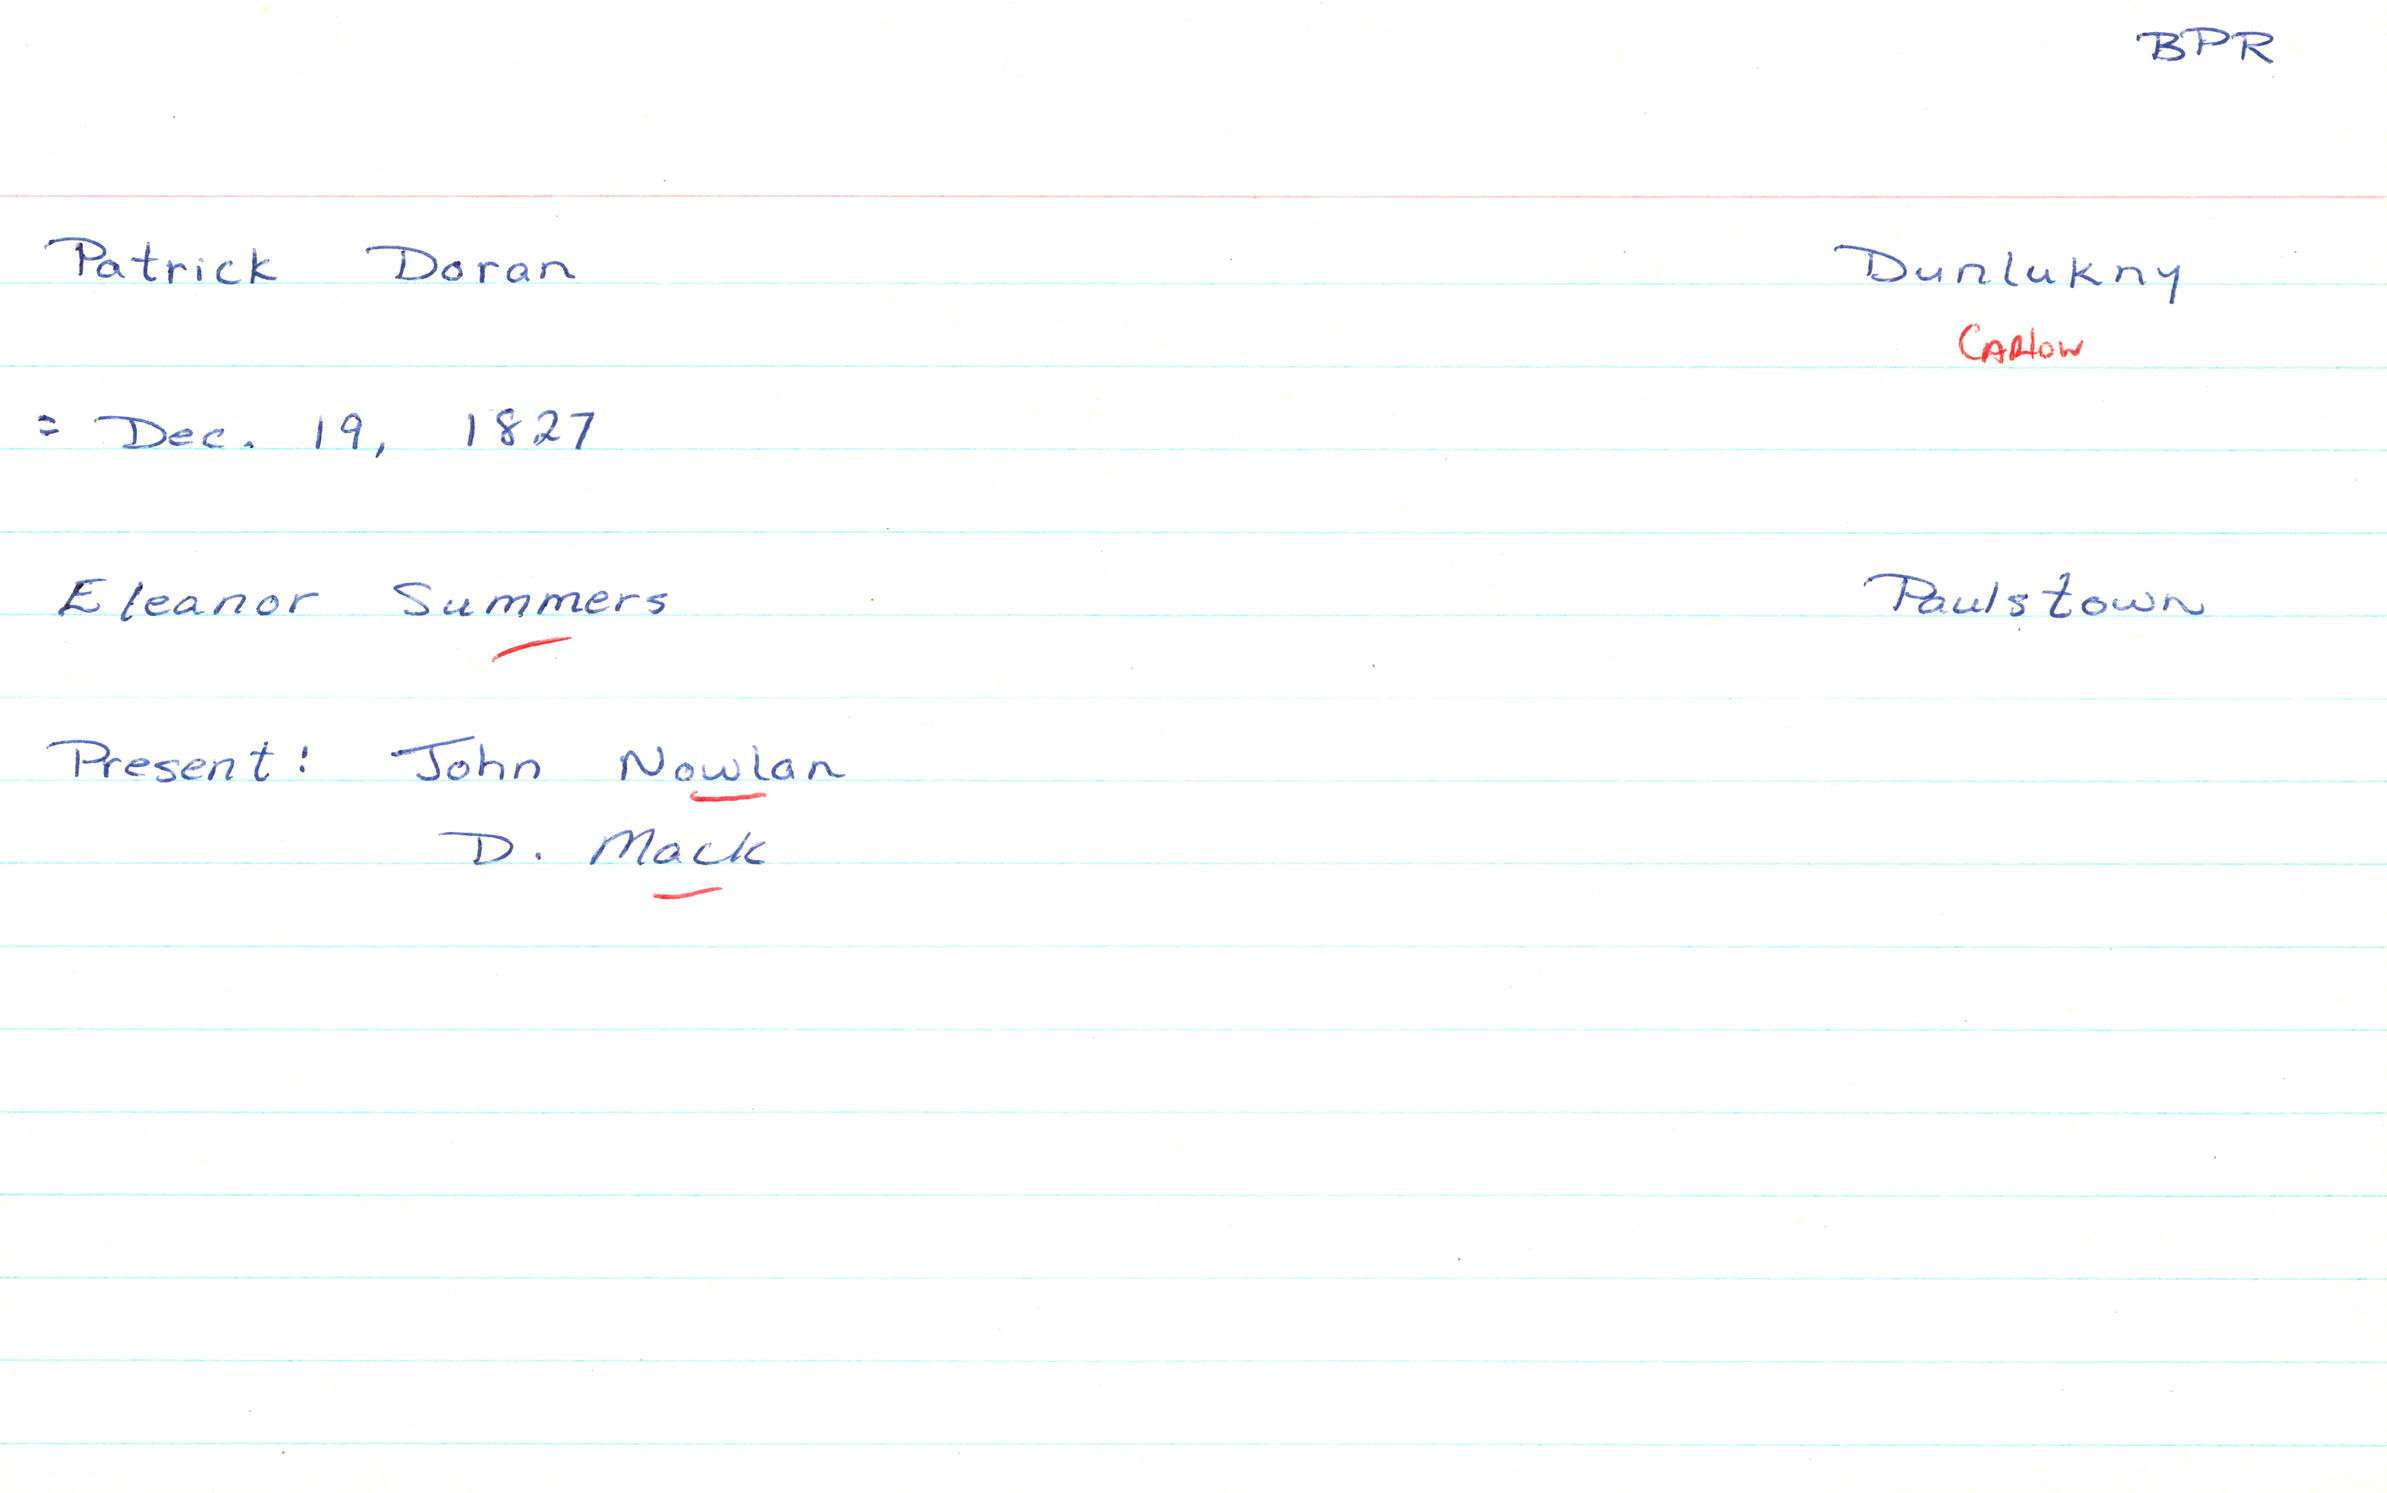 BPR
Patrick Doran Dunlukny
CARlow
= Dec. 19, 1827
Eleanor Summers Paulstown
Present: John Nowlan
D. Mack